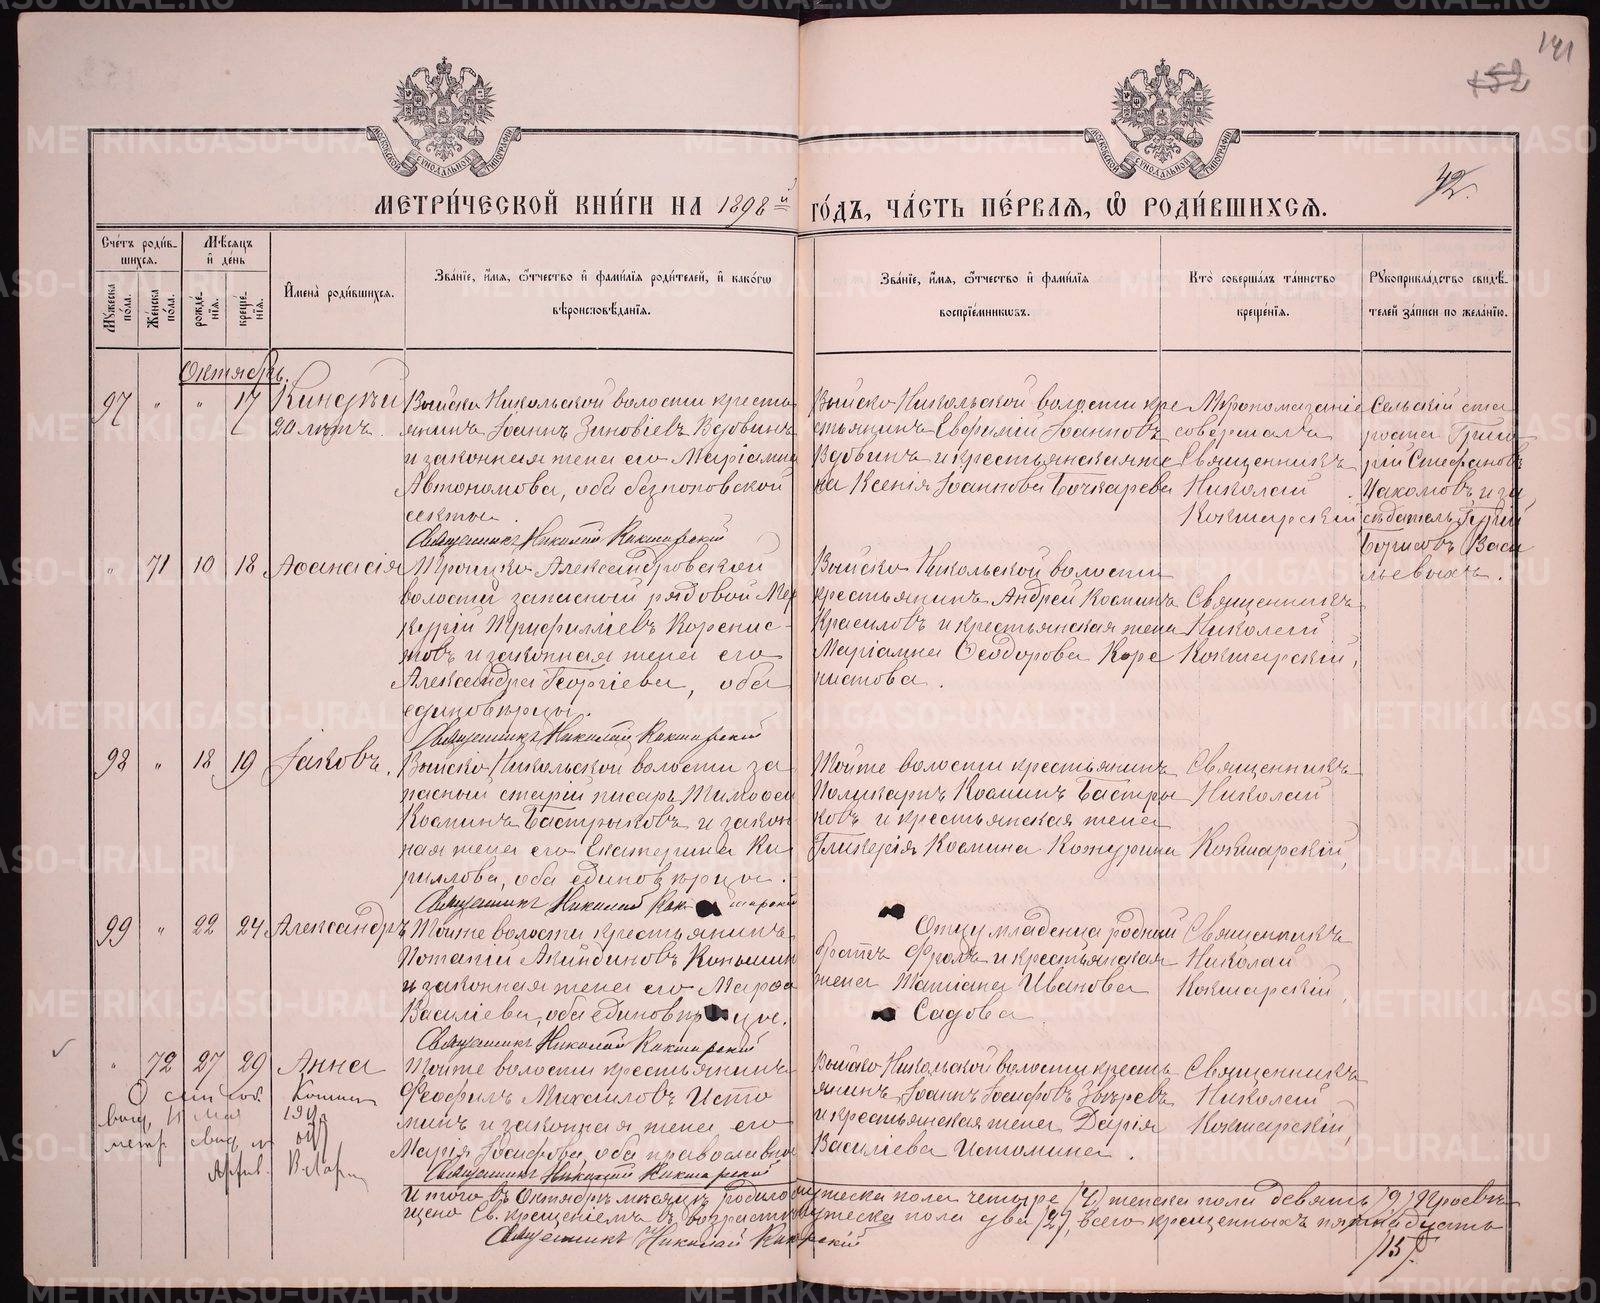 141
152
42.
МОСКОВСКОЙ СУНОДАЛЬНОЙ ТИПОГРАФІИ
МОСКОВСКОЙ СУНОДАЛЬНОЙ ТИПОГРАФІИ
МЕТРИ́ЧЕСКОЙ КНИ́ГИ НА 1898й ГО́ДЪ, ЧА́СТЬ ПЕ́РВАЯ, Ѡ РОДИ́ВШИХСЯ.
Сче́тъ роди́вшихся.
Му́жеска по́ла.
Же́нска по́ла.
Мѣ́сяцъ и де́нь
рожде́нія.
креще́нія.
Имена̀ роди́вшихся.
Зва́ніе, и́мя, ѻ́тчество и фами́лія роди́телей, и како́гѡ вѣроисповѣ́данія.
Зва́ніе, и́мя, ѻ́тчество и фами́лія воспріе́мникѡвъ.
Кто̀ соверша́лъ та́инство креще́нія.
Рукоприкла́дство свидѣ́телей за́писи по жела́нію.
Октябрь.
97 " " 17
20 лѣтъ.
Выйско Никольской волости кресть
янинъ Іоаннъ Зиновіевъ Вдовинъ
и законная жена его Маріамна
Автономова, оба безпоповской
секты.
Священникъ Николай Кокшарскій
Выйско Никольской волости кре
стьянинъ Евфимій Іоанновъ
Вдовинъ и крестьянская же
на Ксенія Іоаннова Бочкарева
Мѵропомазаніе
совершалъ
Священникъ
Николай
Кокшарскій
Сельскій ста
роста Григо
рій Стефановъ
и за
сѣдатель
Борисовъ Васи
льевыхъ.
" 71 10 18 Аѳанасія
Троицко Александровской
волости запасный рядовой Мер
курій Трифилліевъ Корепис-
товъ и законная жена его
Александра Георгіева, оба
единовѣрцы.
Священникъ Николай Кокшарскій
Выйско Никольской волости
крестьянинъ Андрей Косминъ
Красиловъ и крестьянская жена
Маріамна Ѳеодорова Коре
пистова.
Священникъ
Николай
Кокшарскій,
98 " 18 19 Іаковъ.
Выйско Никольской волости за
пасный старшій писарь Тимоѳей
Косминъ Бастрыковъ и закон
ная жена его Екатерина Ки
риллова, оба единовѣрцы.
Священникъ Николай Кокшарскій
Тойже волости крестьянинъ
Поликарпъ Косминъ Бастры
ковъ и крестьянская жена
Гликерія Космина Кожурина
Священникъ
Николай
Кокшарскій,
99 " 22 24 Александръ
Тойже волости крестьянинъ
Потапій Акиндиновъ Коньшин
и законная жена его Марѳа
Василіева, оба единовѣрцы.
Священникъ Николай Кокшарскій
Отцу младенца родный
братъ Фролъ и крестьянская
жена Татіана Иванова
Садова
Священникъ
Николай
Кокшарскій,
" 72 27 29 Анна
Тойже волости крестьянинъ
Феофилъ Михаиловъ Исто
минъ и законная жена его
Марія Іосифова, оба православные
Священникъ Николай Кокшарскій
Выйско Никольской волости кресть
янинъ Іоаннъ Іосифовъ Звѣревъ
и крестьянская жена Дарія
Василіева Истомина.
Священникъ
Николай
Кокшарскій,
Итого въ Октябрѣ мѣсяцѣ родилось мужеска пола четыре (4) женска пола девять (9) Просвѣ
щено Св. крещеніемъ въ возрастѣ мужеска пола два (2), всего крещенныхъ пятнадцать
(15).
Священникъ Николай Кокшарскій
METRIKI.GASO-URAL.RU